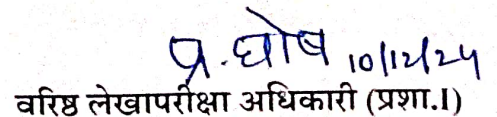 प्र. घोष 10/12/24
वरिष्ठ लेखापरीक्षा अधिकारी (प्रशा.I)